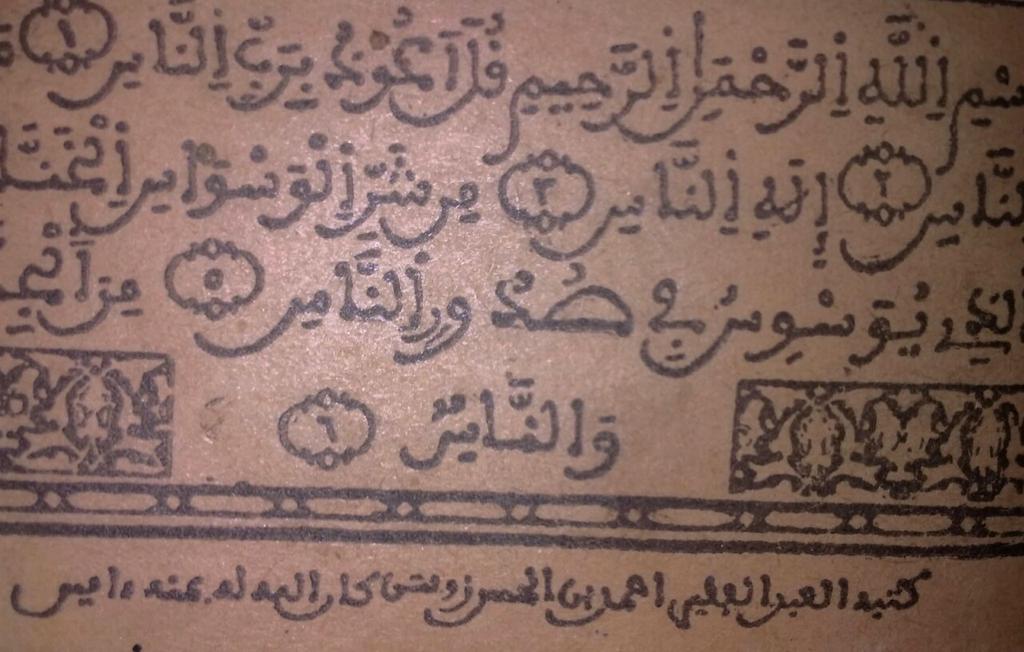 بِسْمِ اِللَّهِ اِلرَّحْمَٰنِ اِلرَّحِيمِ قُلَ اَعُوذُ بِرَبِّ اِلنَّاسِ ١
اِلنَّاسِ ٢ إِلَٰهِ اِلنَّاسِ ٣ مِن شَرِّ اِلْوَسْوَاسِ اِلْخَنَّاسِ
اَلذِے يُوَسْوِسُ فِے صُدُورِ اِلنَّاسِ ٥ مِنَ اَلْجِنَّةِ
وَالنَّاسِ ٦
كتبه العبد الفقير احمد بن الحسن زويتن كان الله له بمنه ءاميس